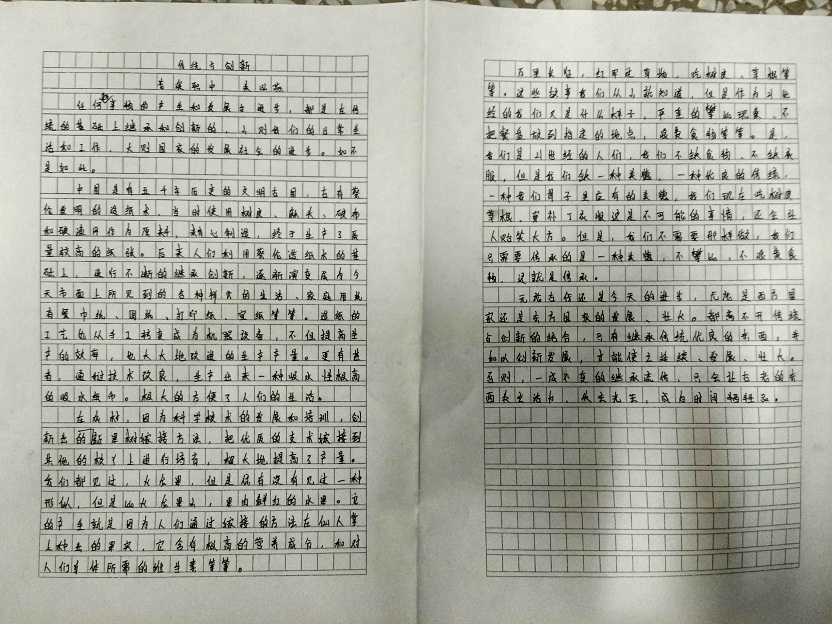 传统与创新
任何事物的产生和发展与进步，都是在传
统的基础上继承和创新的，小则我们的日常生
活和工作，大则国家的发展社会的进步。如不
是如此。
中国是有五千年历史的文明古国，古有蔡
伦发明的造纸术，当时使用树皮、麻头、破布
和破渔网作为原料，精心制造，终于生产了质
量较高的纸张。后来人们利用蔡伦造纸术的基
础上，进行不断的继承创新，逐渐演变成为今
天市面上所见到的各种样式的生活、家庭用纸
有餐巾纸、圆纸、打印纸、宣纸等等。造纸的
工艺也从手工转变成为机器设备，不但提高生
产的效率，也大大地改进的生产产量。更有甚
者，通过技术改良，生产出来一种吸水性极高
的吸水纸巾。极大的方便了人们的生活。
在农村，因为科学技术的发展和培训，创
新出的新果树嫁接方法，把优质的文术嫁接到
其他的枝丫上进行培育，极大地提高了产量。
我们都见过，火龙果，但是你有没有见过一种
形似，但是比火龙果小，果肉鲜红的水果。它
的产生就是因为人们通过嫁接的方法在仙人掌
上种出的果实，它含有极高的营养成分，和对
人们身体所需的维生素等等。
万里长征，红军过草地，吃树皮、草根等
等。这些故事我们从小就知道，但是作为21世
纪的我们又是什么样子，严重的攀比现象、不
把餐盘放到指定的地点，浪费食物等等。是，
我们是21世纪的人们，我们不缺食物、不缺衣
服，但是我们缺一种美德，一种优良的传统，
一种我们骨子里应有的美德，我们现在吃树皮
草根、穿补丁衣服这是不可能的事情，还会让
人贻笑大方。但是，我们不需要那样做，我们
只需要传承的是一种美德，不攀比，不浪费食
物，这就是传承。
无论古代还是今天的进步，无论是西方国
家还是东方国家的发展、壮大。都离不开传统
与创新的结合，只有继承传统优良的东西，并
加以创新发展，才能使之延续、发展、壮大。
否则，一成不变的继承流传，只会让古老的东
西失去活力，从而先生，成为时间牺牲品。